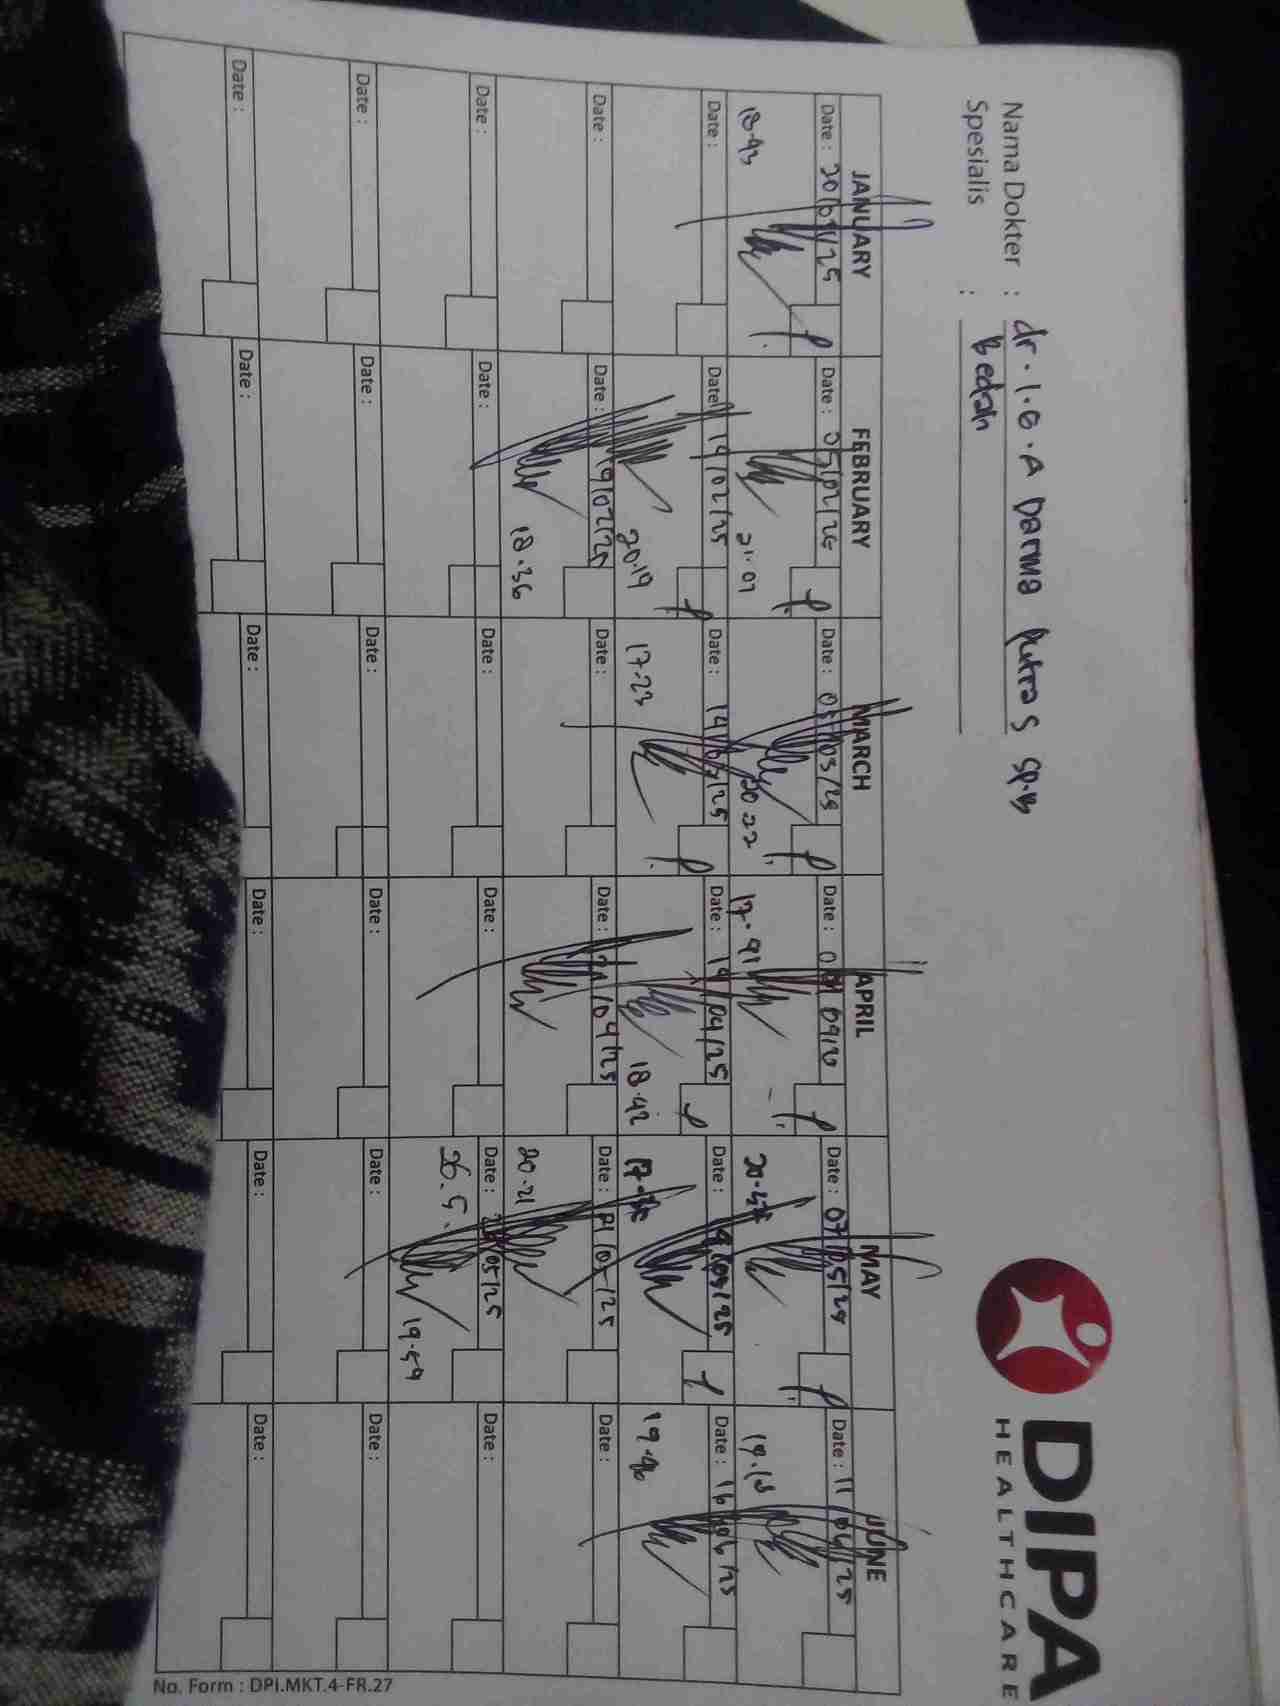 DIPA
HEALTHCARE
Nama Dokter : dr. I. G. A Darma Putra S Sp.B
Spesialis : Bedah
JANUARY FEBRUARY MARCH APRIL MAY JUNE
Date : 20/01/25 Date : 05/02/25 Date : 05/03/25 Date : Date : 07/05/25 Date : 11/06/25
18.43 21.07 20.22 17.41 20.47 19.18
Date : Date : 14/02/25 Date : 14/03/25 Date : 14/04/25 Date : Date : 16/06/25
20.19 17.23 18.42 19.40
Date : Date : 19/02/25 Date : Date : 21/04/25 Date : 21/05/25 Date :
18.36 20.21
Date : Date : Date : Date : Date : /05/25 Date :
19.59
Date : Date : Date : Date : Date : Date :
Date : Date : Date : Date : Date : Date :
No. Form : DPI.MKT.4-FR.27